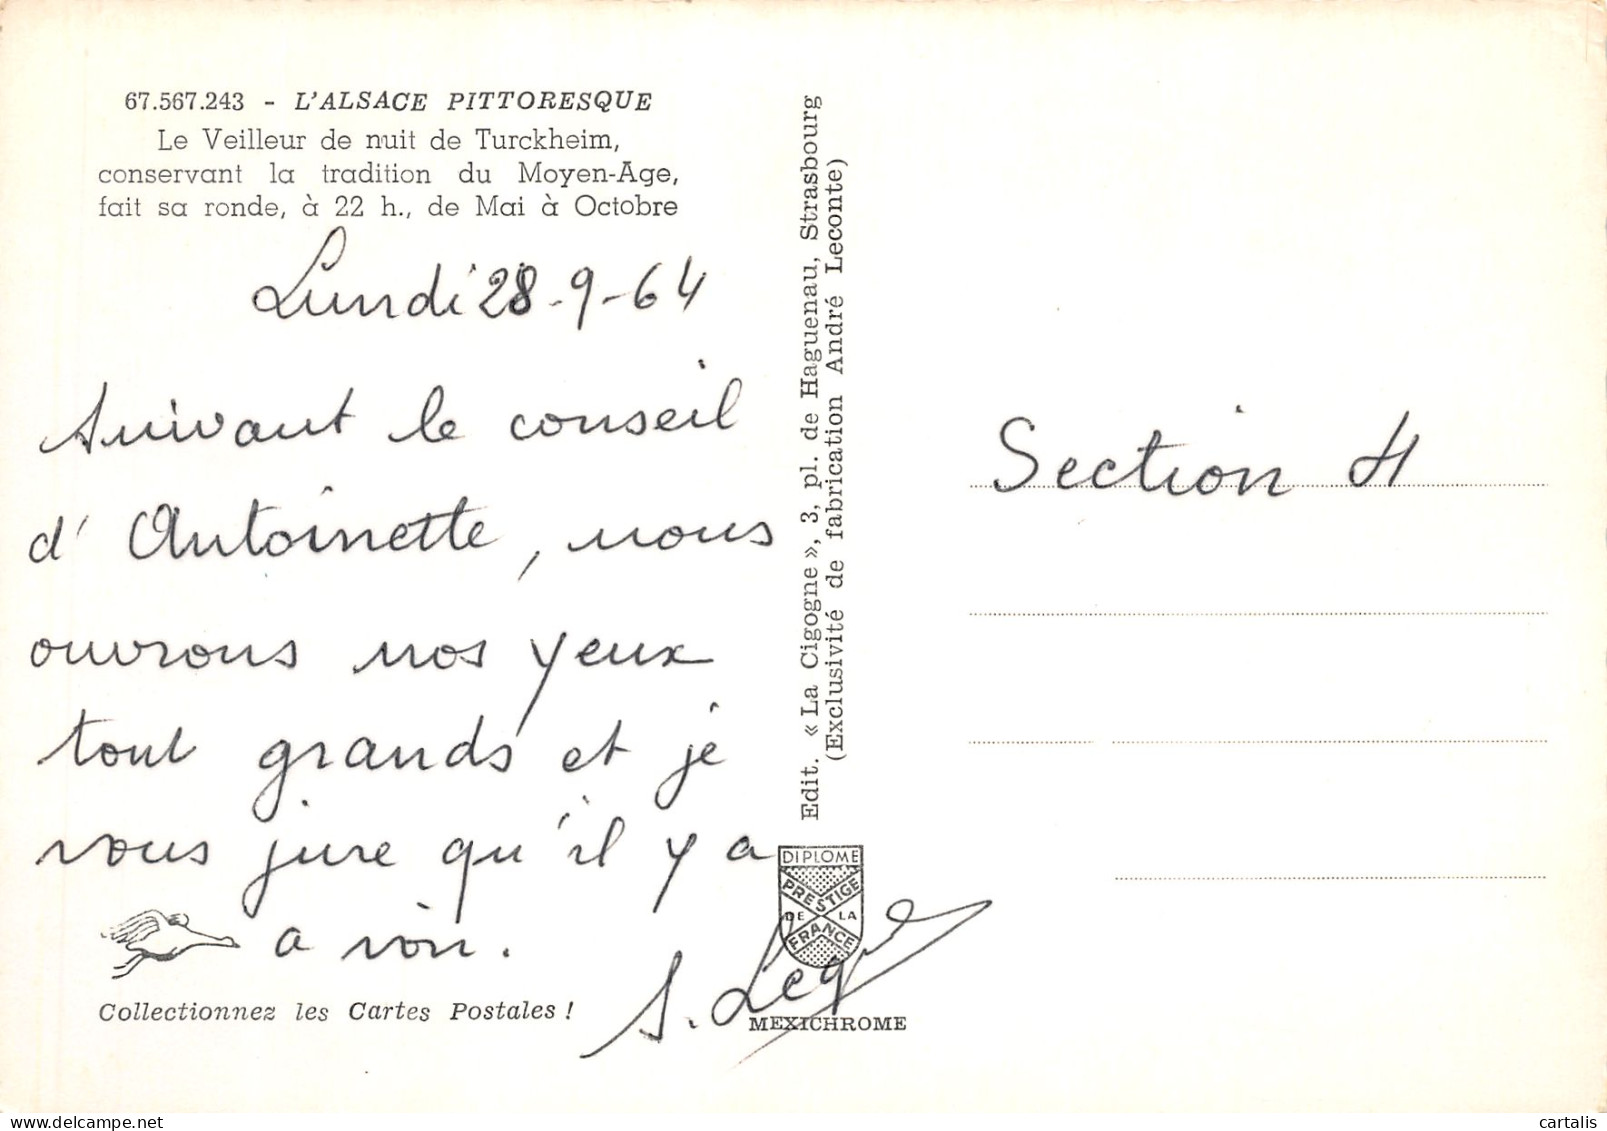 67.567.243 - L'ALSACE PITTORESQUE
Le Veilleur de nuit de Turckheim,
conservant la tradition du Moyen-Age,
fait sa ronde, à 22 h., de Mai à Octobre
Lundi 28-9-64
Suivant le conseil
d'Antoinette, nous
ouvrons nos yeux
tout grands et je
vous jure qu'il y a
a voir.
Collectionnez les Cartes Postales !
Edit. « La Cigogne », 3, pl. de Haguenau, Strasbourg
(Exclusivité de fabrication André Leconte)
DIPLOME
PRESTIGE
DE LA
FRANCE
MEXICHROME
Section H
cartalis